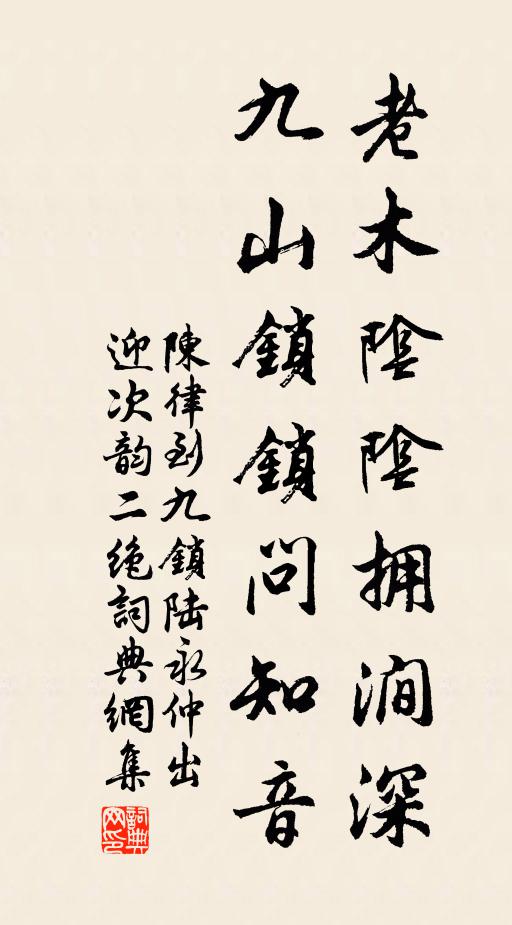 老木陰陰拥澗深
九山鎖鎖問知音
陳律到九鎖陆永仲出
迎次韵二絶詞典網集
詞典网印